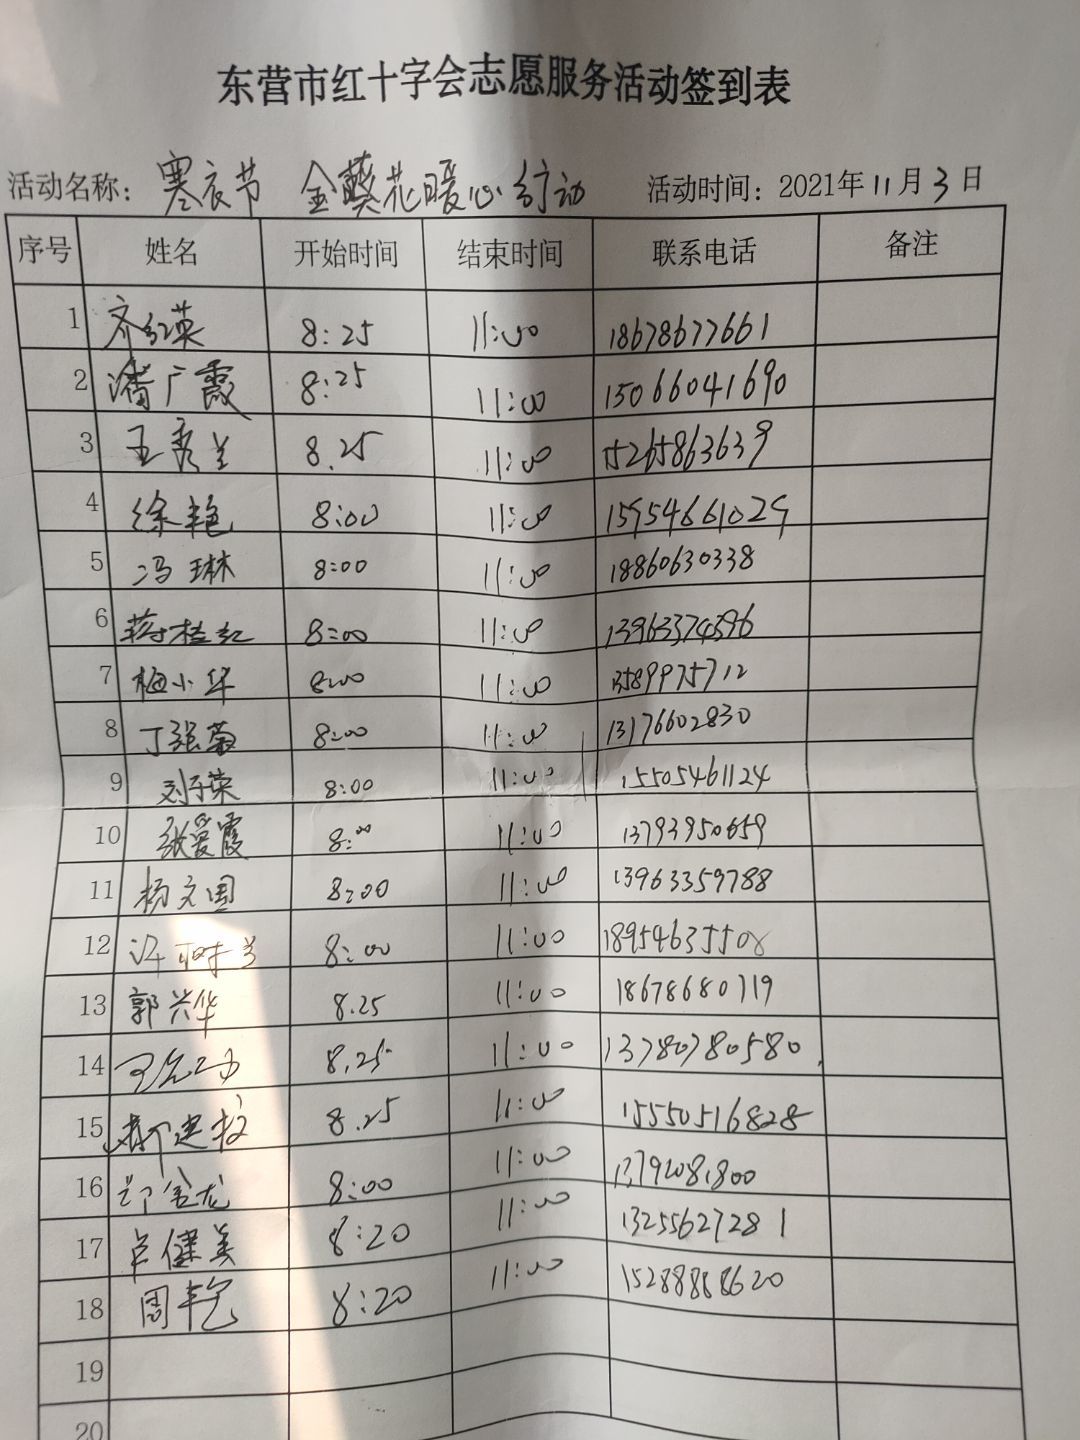 东营市红十字会志愿服务活动签到表
活动名称： 寒衣节 金葵花暖心行动 活动时间：2021年11月3日
序号 姓名 开始时间 结束时间 联系电话 备注
1 齐红英 8:25 11:00 18678677661
2 潘广霞 8:25 11:00 15066041690
3 王秀兰 8.25 11:00 15265863639
4 徐艳 8:00 11:00 15954661029
5 冯琳 8:00 11:00 18860630338
6 蒋桂红 8:00 11:00 13963374396
7 梅小华 8:00 11:00 13589975712
8 丁强菊 8:00 11:00 13176602830
9 刘于荣 8:00 11:00 15505461124
10 张爱霞 8:00 11:00 13793950659
11 杨文国 8:00 11:00 13963359788
12 8:00 11:00 18954635508
13 郭兴华 8.25 11:00 18678680719
14 8.25 11:00 13780780580
15 8.25 11:00 15550516828
16 8:00 11:00 13792081800
17 卢健美 8:20 11:00 13255627281
18 周艳 8:20 11:00 15288888620
19
20